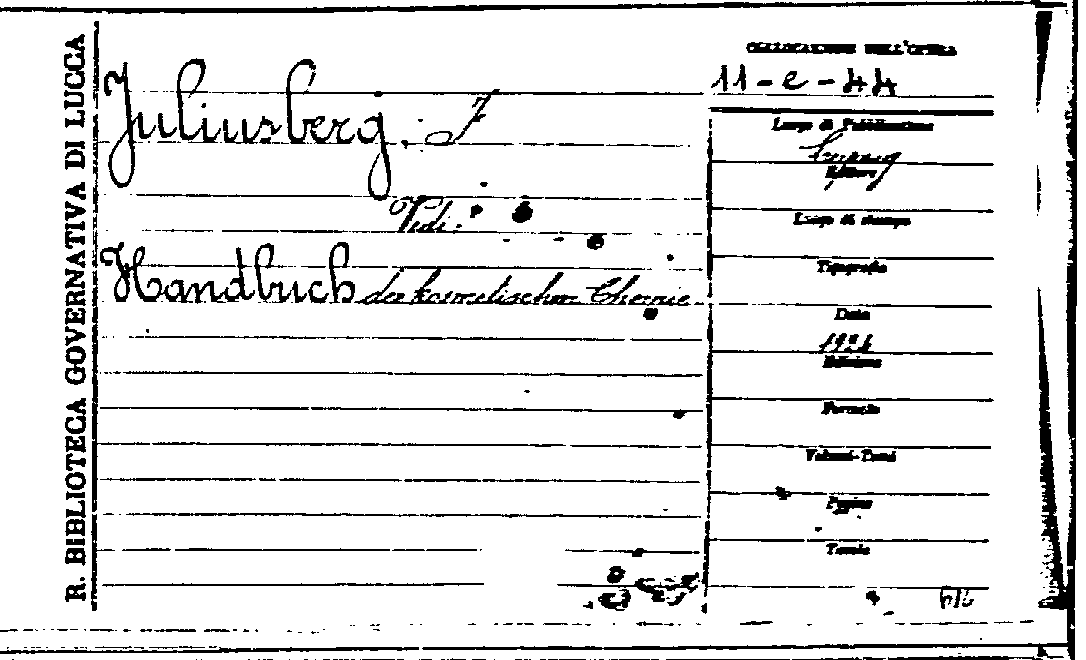 R. BIBLIOTECA GOVERNATIVA DI LUCCA
COLLOCAZIONE DELL'OPERA
11-e-44
Juliusberg. F
Vedi:
Handbuch der kosmetischen Chemie
Luogo di Pubblicazione
Editore
Luogo di stampa
Tipografia
Data
Edizione
Formato
Volumi-Tomi
Pagine
Tavole